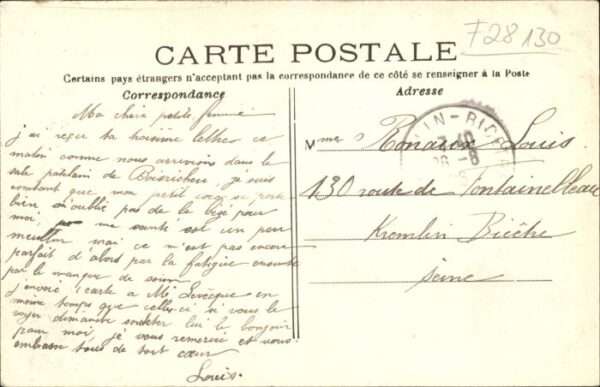 F28130
CARTE POSTALE
Certains pays étrangers n'acceptant pas la correspondance de ce côté se renseigner à la Poste
Correspondance
Adresse
Ma chère petite femme
j'ai reçu ta troisième lettre ce
matin comme nous arrivions dans le
sale patelain de je suis
content que mon petit coco se porte
bien n'oublie pas de le bige pour
moi, ma santé est un peu
meullieu mai ce n'est pas encore
parfait d'abord par la fatigue ensuite
par le manque de
j'envoie 1 carte a Me Levèque en
même temps que celle-ci si vous le
voyer demande souhter lui le bonjoir
pour moi, je vous remercie et vous
embrasse tous de tout cœur
Louis.
Mme Louis.
130 route de Fontainebleau
Kremlin Bicêtre
Seine
LIN-BICE